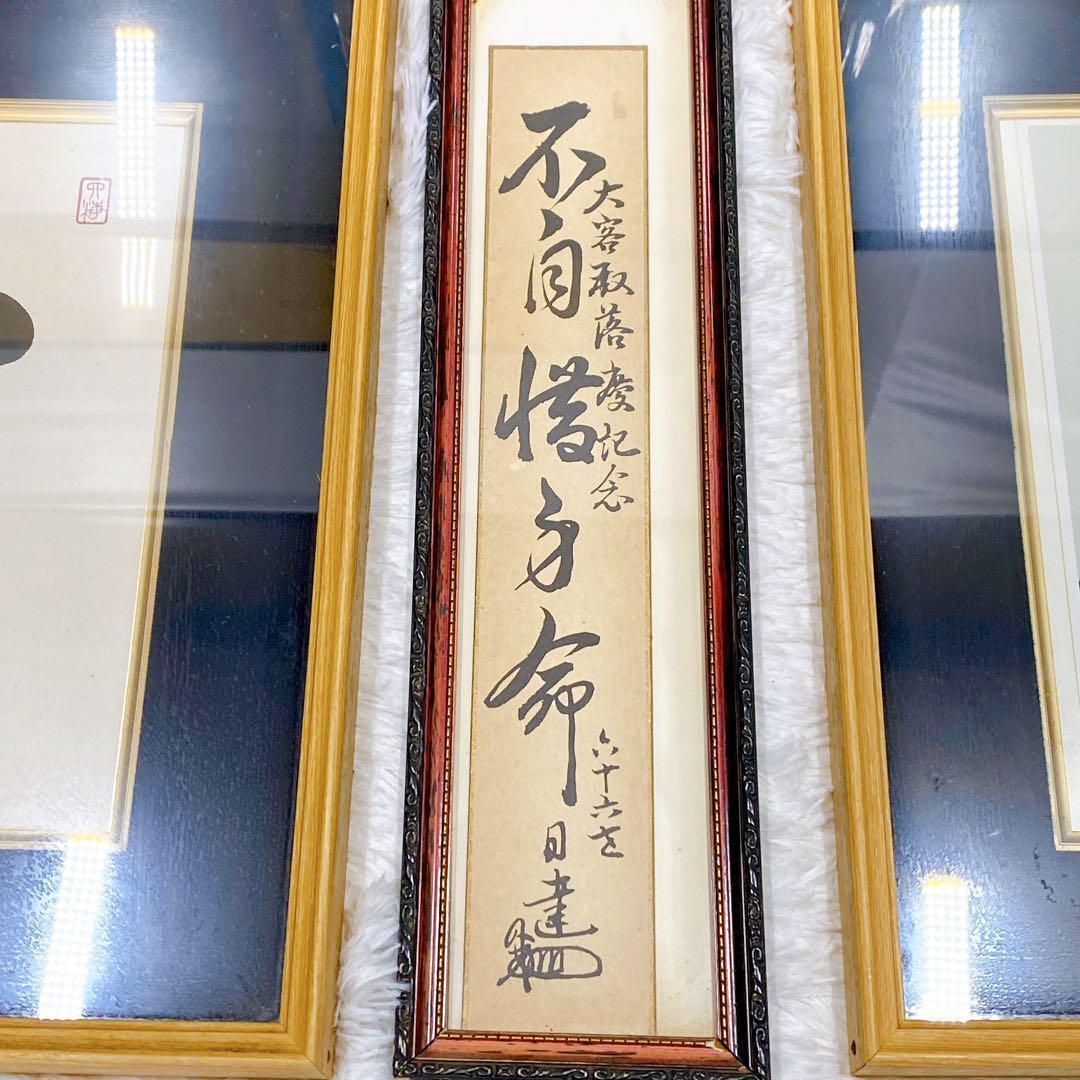 大客殿落慶記念
不自惜身命
六十六老
日達